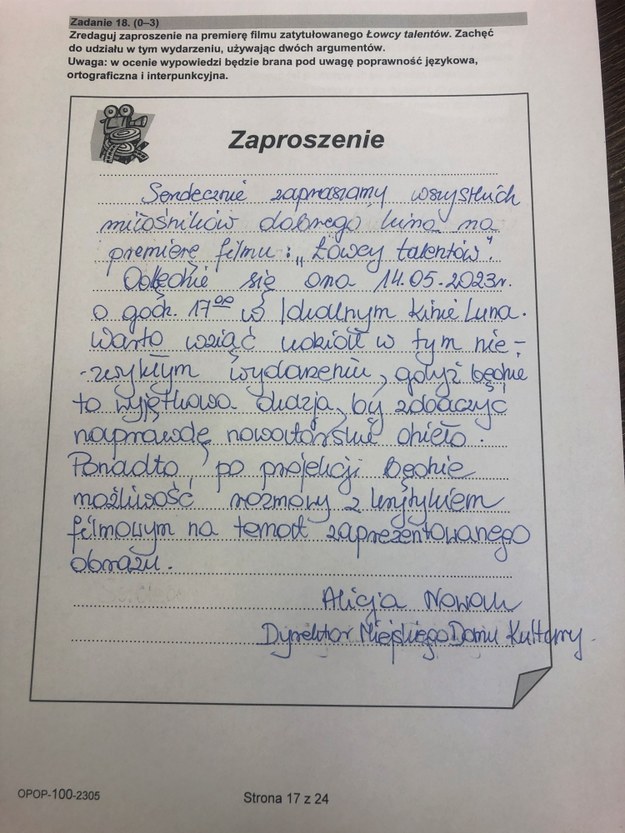 Zadanie 18. (0–3)
Zredaguj zaproszenie na premierę filmu zatytułowanego Łowcy talentów. Zachęć
do udziału w tym wydarzeniu, używając dwóch argumentów.
Uwaga: w ocenie wypowiedzi będzie brana pod uwagę poprawność językowa,
ortograficzna i interpunkcyjna.
Zaproszenie
Serdecznie zapraszamy wszystkich
miłośników dobrego kina na
premierę filmu: „Łowcy talentów".
Odbędzie się ona 14.05.2023r.
o godz. 17⁰⁰ w lokalnym kinie Luna.
Warto wziąć udział w tym nie-
-zwykłym wydarzeniu, gdyż będzie
to wyjątkowa okazja, by zobaczyć
naprawdę nowatorskie dzieło.
Ponadto, po projekcji będzie
możliwość rozmowy z krytykiem
filmowym na temat zaprezentowanego
obrazu.
Alicja Nowak
Dyrektor Miejskiego Domu Kultury.
OPOP-100-2305
Strona 17 z 24